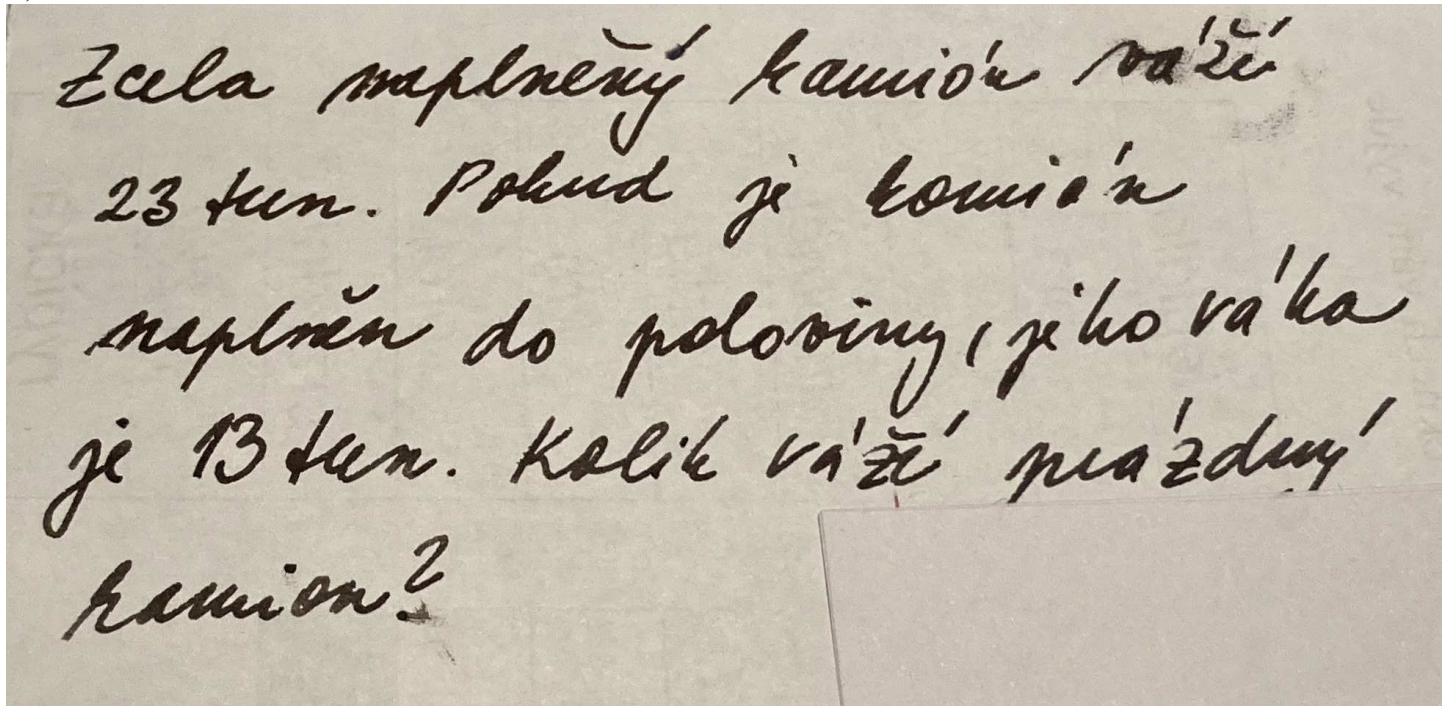 Zcela naplněný kamión váží
23 tun. Pokud je kamión
naplněn do poloviny, jeho váha
je 13 tun. Kolik váží prázdný
kamion?